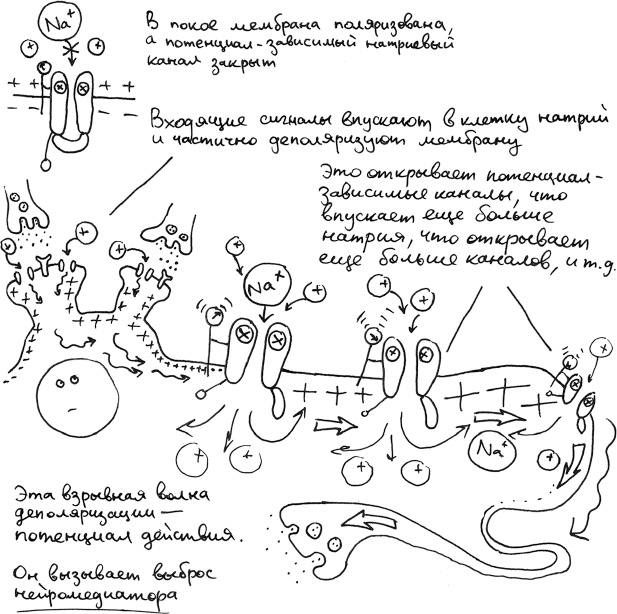 Na⁺
+
+
В покое мембрана поляризована,
а потенциал-зависимый натриевый
канал закрыт
Входящие сигналы впускают в клетку натрий
и частично деполяризуют мембрану
Это открывает потенциал-
зависимые каналы, что
впускает еще больше
натрия, что открывает
еще больше каналов, и т.д.
Na⁺
Na⁺
Эта взрывная волна
деполяризации —
потенциал действия.
Он вызывает выброс
нейромедиатора